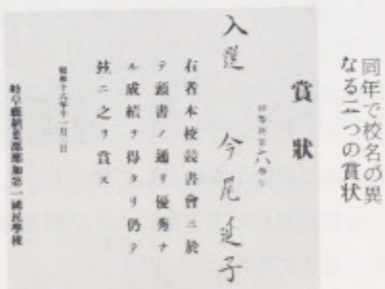 同年で校名の異
なる二つの賞状
賞狀
初等科第六學年
入選 今尾延子
右者本校競書會ニ於
テ頭書ノ通リ優秀ナ
ル成績ヲ得タリ仍テ
玆ニ之ヲ賞ス
昭和十六年十一月三日
加第一國民學校